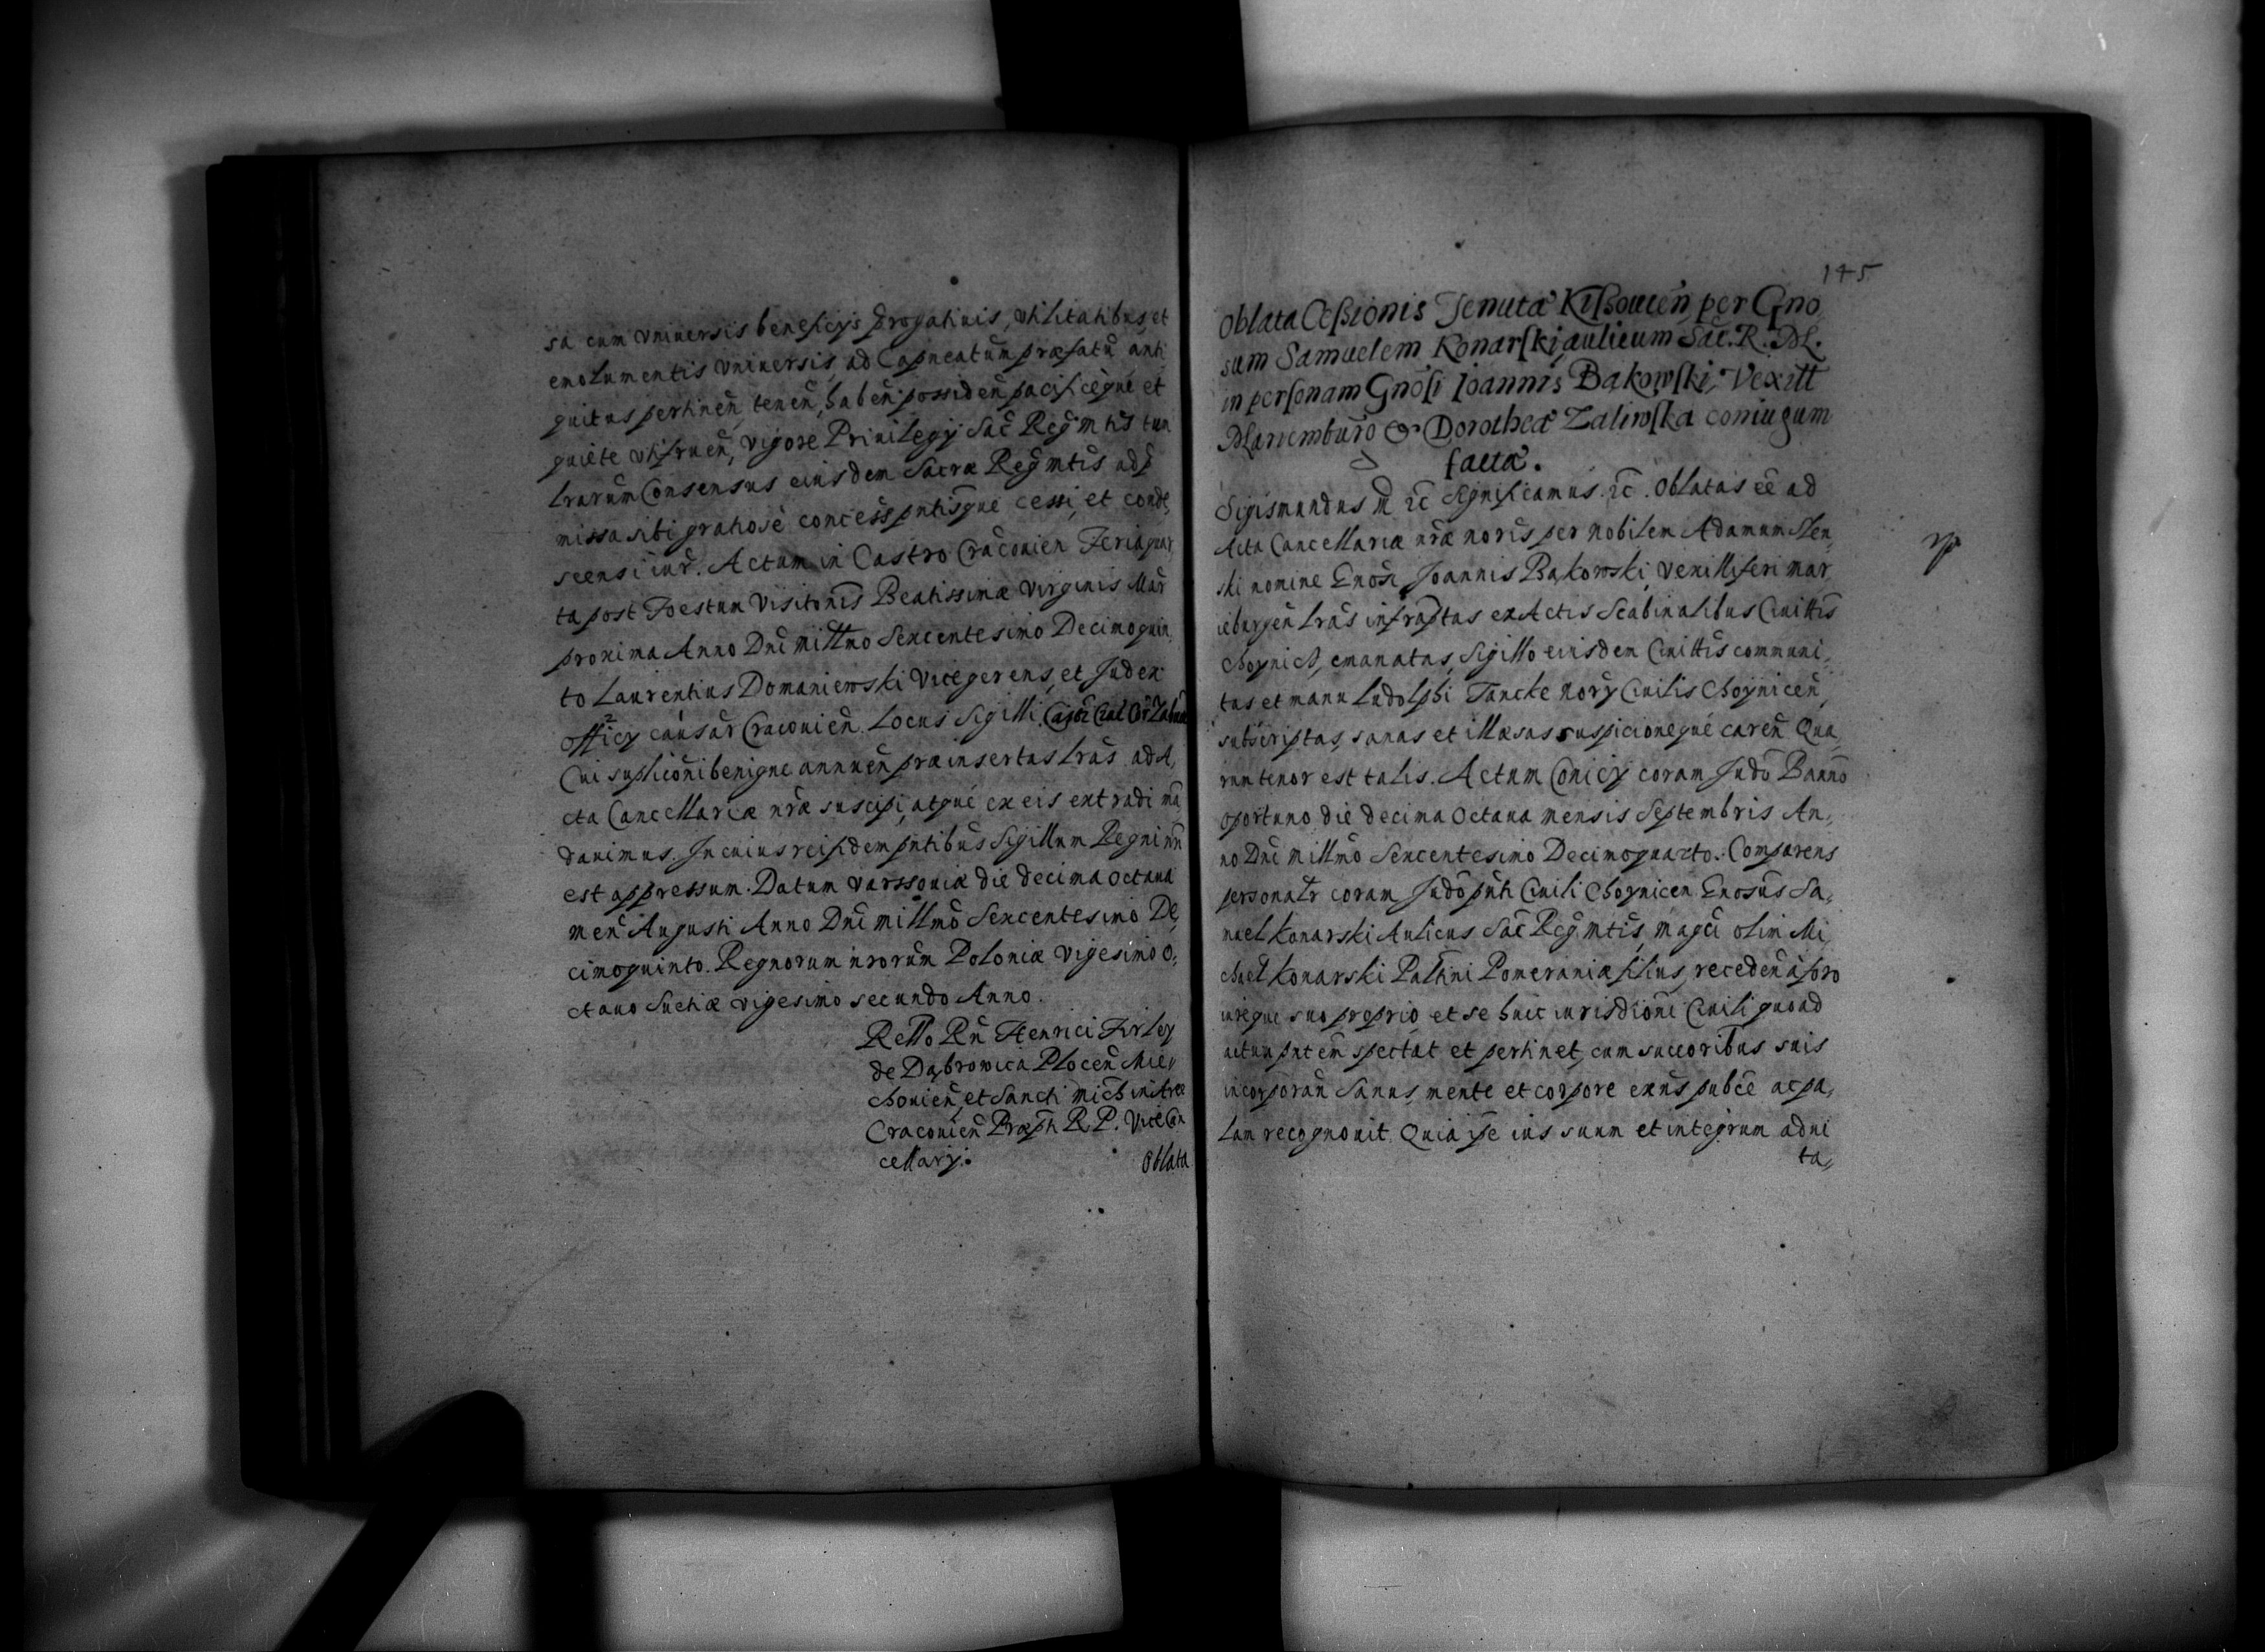 sa cum vniuersis beneficijs prrogatiuis, vtilitatibus, et
emolumentis vniuersis ad Capneatum præfatũ anti
quitus pertineñ, teneñ, habeñ possideñ pacificèque et
quiete vtifrueñ, vigore Priuilegij Sac̃ Reg̃ Mtis tum
lrarum Consensus eiusdem Sacræ Reg̃ Mtis adp̃
missa sibi gratiosè concess pntisque cessi, et conde,
scensi iur̃. Actum in Castro Cracouien Feria quar
ta post Foestum Visitonis Beatissimæ Virginis Mar
proxima Anno Dni millmo Sexcentesimo Decimoquin,
to Laurentius Domaniewski Vicegerens, et Judex
Officij causar Cracouien̄. Locus Sigilli
Cui suplicoñi benigne annueñ præinsertas lras ad A,
cta Cancellariæ nræ suscipi, atquè ex eis extradi mã
dauimus. In cuius rei fidem pntibus Sigillum Regni nr̃i
est appressum. Datum Varssouiæ die decima octaua
meñ Augusti Anno Dni millmo Sexcentesimo De,
cimoquinto. Regnorum nrorum Poloniæ vigesimo o,
ctauo Suetiæ vigesimo secundo Anno.
Rello Rñ Henrici Firley
de Dąbrowica Ploceñ Mie,,
chouieñ, et Sancti Mich in Arce
Cracouieñ Præpti R. P. Vice Can
cellarij.
Oblata
145
Oblata Ceßionis Tenutæ Kißouieñ per Gno
sum Samuelem Konarſki, aulicum Sac̃. R. M.
in perſonam Gnoſi Ioannis Bakowſki, Vexill
Mariemburõ & Dorotheæ Zaliwſka coniugum
facta.
Sigismundus III rc̃ Significamus. rc̃. Oblatas eẽ ad
Acta Cancellariæ nræ noris per nobilem Adamum
ski nomine Gnosi Joannis Bąkowski, vexilliferi mar,
ieburgeñ lras infraptas ex Actis Scabinalibus Ciuittis
Choynich, emanatas, Sigillo eiusdem Ciuittis communi,
tas et manu Ludolphi Tancke norij Ciuilis Choyniceñ,
subscriptas, sanas et illæsas suspicionequè careñ Qua,
rum tenor est talis. Actum Conicij coram Judo Banno
oportuno die decima Octaua mensis Septembris An,
no Dni Millmo Sexcentesimo Decimoquarto. Comparens
personalr coram Judo pnti Ciuili Choynicen. Gnosus Sa,
muel Konarski Aulicus Sac̃ Reg̃ Mtis, magci olim Mi,
chael Konarski Paltini Pomeraniæ filius, recedeñ à foro
iureque suo proprio, et se huic iurisdioni Ciuili quoad
actum pntem spectat et pertinet, cum succoribus suis
incorporañ Sanus mente et corpore exñs pubce ac pa,
lam recognouit. Quia ipe ius suum et integrum adui
ta,,